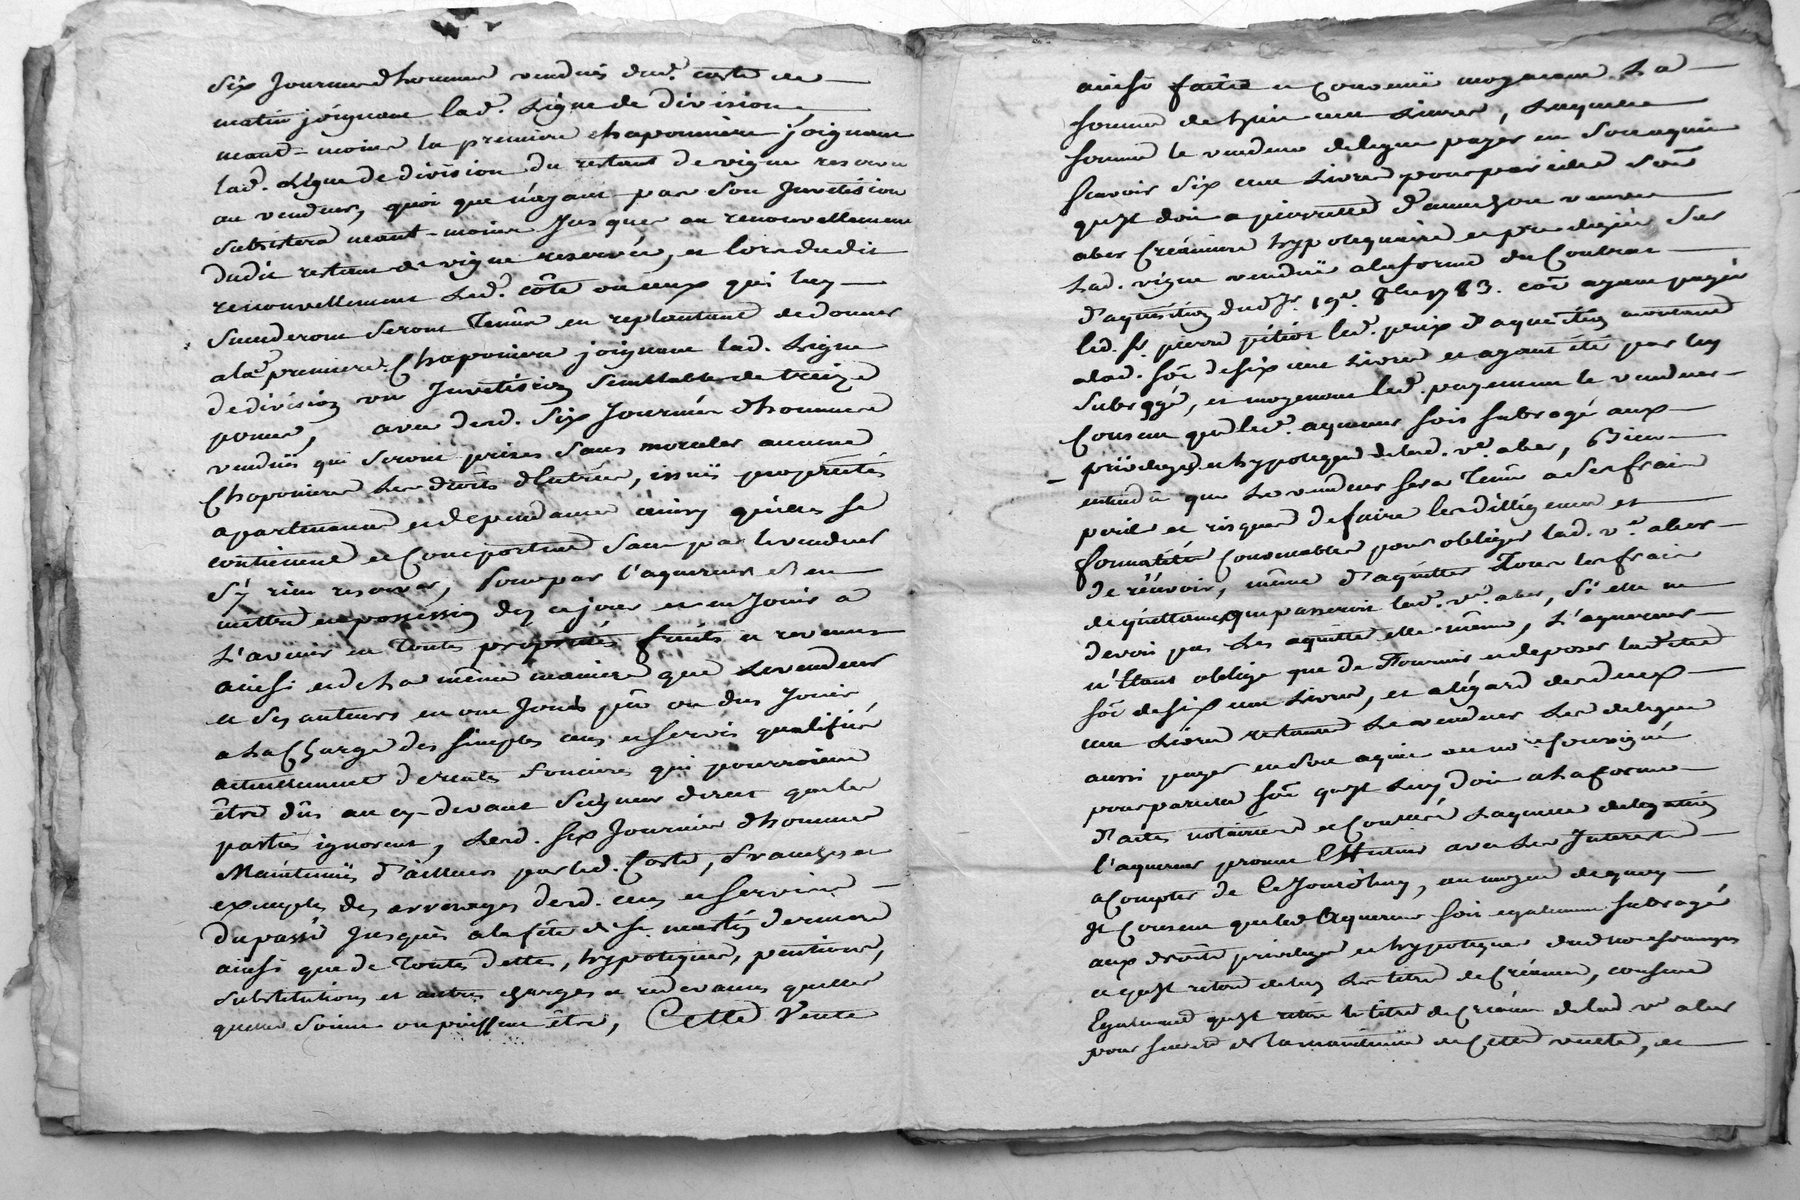 Six Journée dhomme vendües dud. coste de
matin joignant lad. Ligne de division
neant-moins la premiere chaponniere joignant
lad. Ligne de division du restant de vigne reservé
au vendeur, quoi que n'ayant pas son Invetision
subsistera neant-moins Jusques au renouvellement
dudit restant de vigne reservée, et lors dudit
renouvellement led. côte ou ceux qui luy
succederont seront Tenus en replantant de donner
a la premiere Chaponiere joignant lad. Ligne
de division son Invetision semblable de treize
pouces, avec lesd. Six Journée dhomme
vendües qui seront prises sans morceler aucune
Chaponiere les droits d'entrée, issüe proprietés
apartenances et dependances ainsy qu'elles se
contiennent et Comportent sans par le vendeur
s'y rien reserver, pour par l'aquereur s'en
mettre en possession des ce jour et en Jouir a
L'avenir en Toutes proprietés fruits et revenus
ainsi et de la même maniere que Le vendeur
et ses auteurs en ont Joüis pû ou dus Jouir
a la Charge des simples cens et servis qualifiés
actuellement de rentes foncieres qui pourroient
être dûs au cy-devant Seigneur direct que les
parties ignorent, Lesd. Six Journées dhomme
Maintenües d'ailleurs par led. Coste, franches et
exemptes des arrerages desd. cens et servis
du passé Jusques a la fête de St. martin derniere
ainsi que de Toutes dettes, hypoteques, pentions,
substitutions et autres charges et redevances quelles
quelles soient ou puissent être, Cette Vente
ainsi faite et Convenüe moyenant La
somme de huit cent Livres, Laquelle
somme le vendeur delegue payer en son aquit
scavoir six cent Livres pour pareille som̃e
qu'il doit a pierrette veuve
aber Creanciere hypotequaire et privilegiée sur
Lad. vigne vendüe a la forme du Contrat
d'aquisition dud. jr. 19e. 8bre 1783. ayant payé
led. Sr. pierre pitiot led. prix d'aquisition montant
alad. som̃e de six cent Livres et ayant été par luy
subrogé, et moyenant led. payement le vendeur
Consent que led. aquereur soit subrogé aux
privileges et hypoteques de lad. ve. aber, bien
entendu que Le vendeur sera Tenu a ses frais
peril et risques de faire les dilligences et
formalités Convenables pour obliger lad. ve. aber
de reçevoir, même d'aquitter Tous les frais
de quittance que passeroit lad. ve. aber, si elle ne
devoit pas Les aquitter elle-même, L'aquereur
n'étant obligé que de Fournir et deposer
som̃e de six cent Livres, et a légard des deux
cent Livres restant Le vendeur Les delegue
aussi payer en son aquit au nore. soussigné
pour pareille som̃e qu'il Luy doit a la forme
d'acte notairiée et Contrôlé Laquelle delegation
l'aquereur promet Effectuer avec Les Interets
a Compter de Ce Jourdhuy, au moyen de quoy
Il Consent que led. Aquereur soit egalement subrogé
aux droits privileges et hypoteques dud. nore. soussigné
et qu'il retire de luy Les titre de Creance, consent
Egalement qu'il retire le titre de Creance de lad. ve. aber
pour sureté de la maintenüe de Cette vente, et